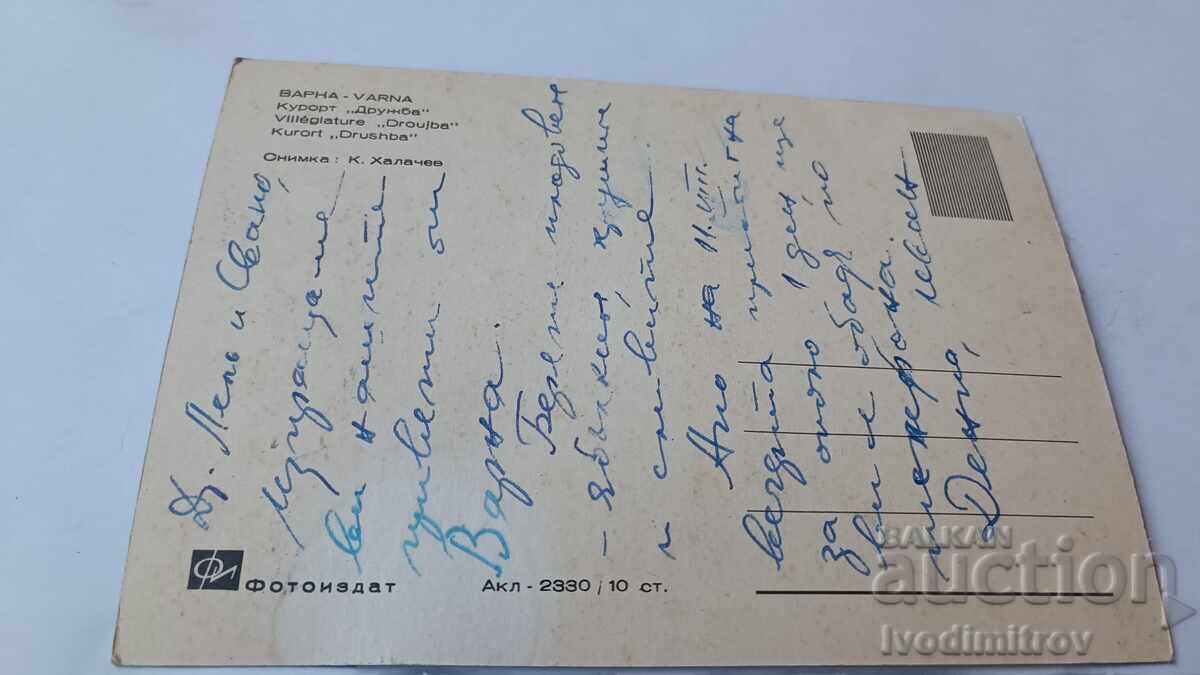 ВАРНА - VARNA
Курорт „Дружба"
Villégiature „Droujba"
Kurort „Drushba"
Снимка: К. Халачев
Др. Лени и
изпращаме
ви нашите
привети от
Варна.
Бъдете плодовен
- ябълки, круши
и сливите.
Ако на 11.VIII.
вечерта
за 1 ден ще
ви се обадя по
телефона.
Денка,
Фотоиздат
Акл - 2330 / 10 ст.
BALKAN
auction
Ivodimitrov